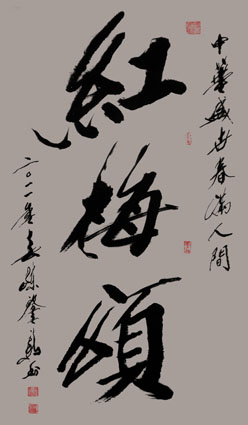 中華盛世春滿人間
紅梅頌
二〇一一年